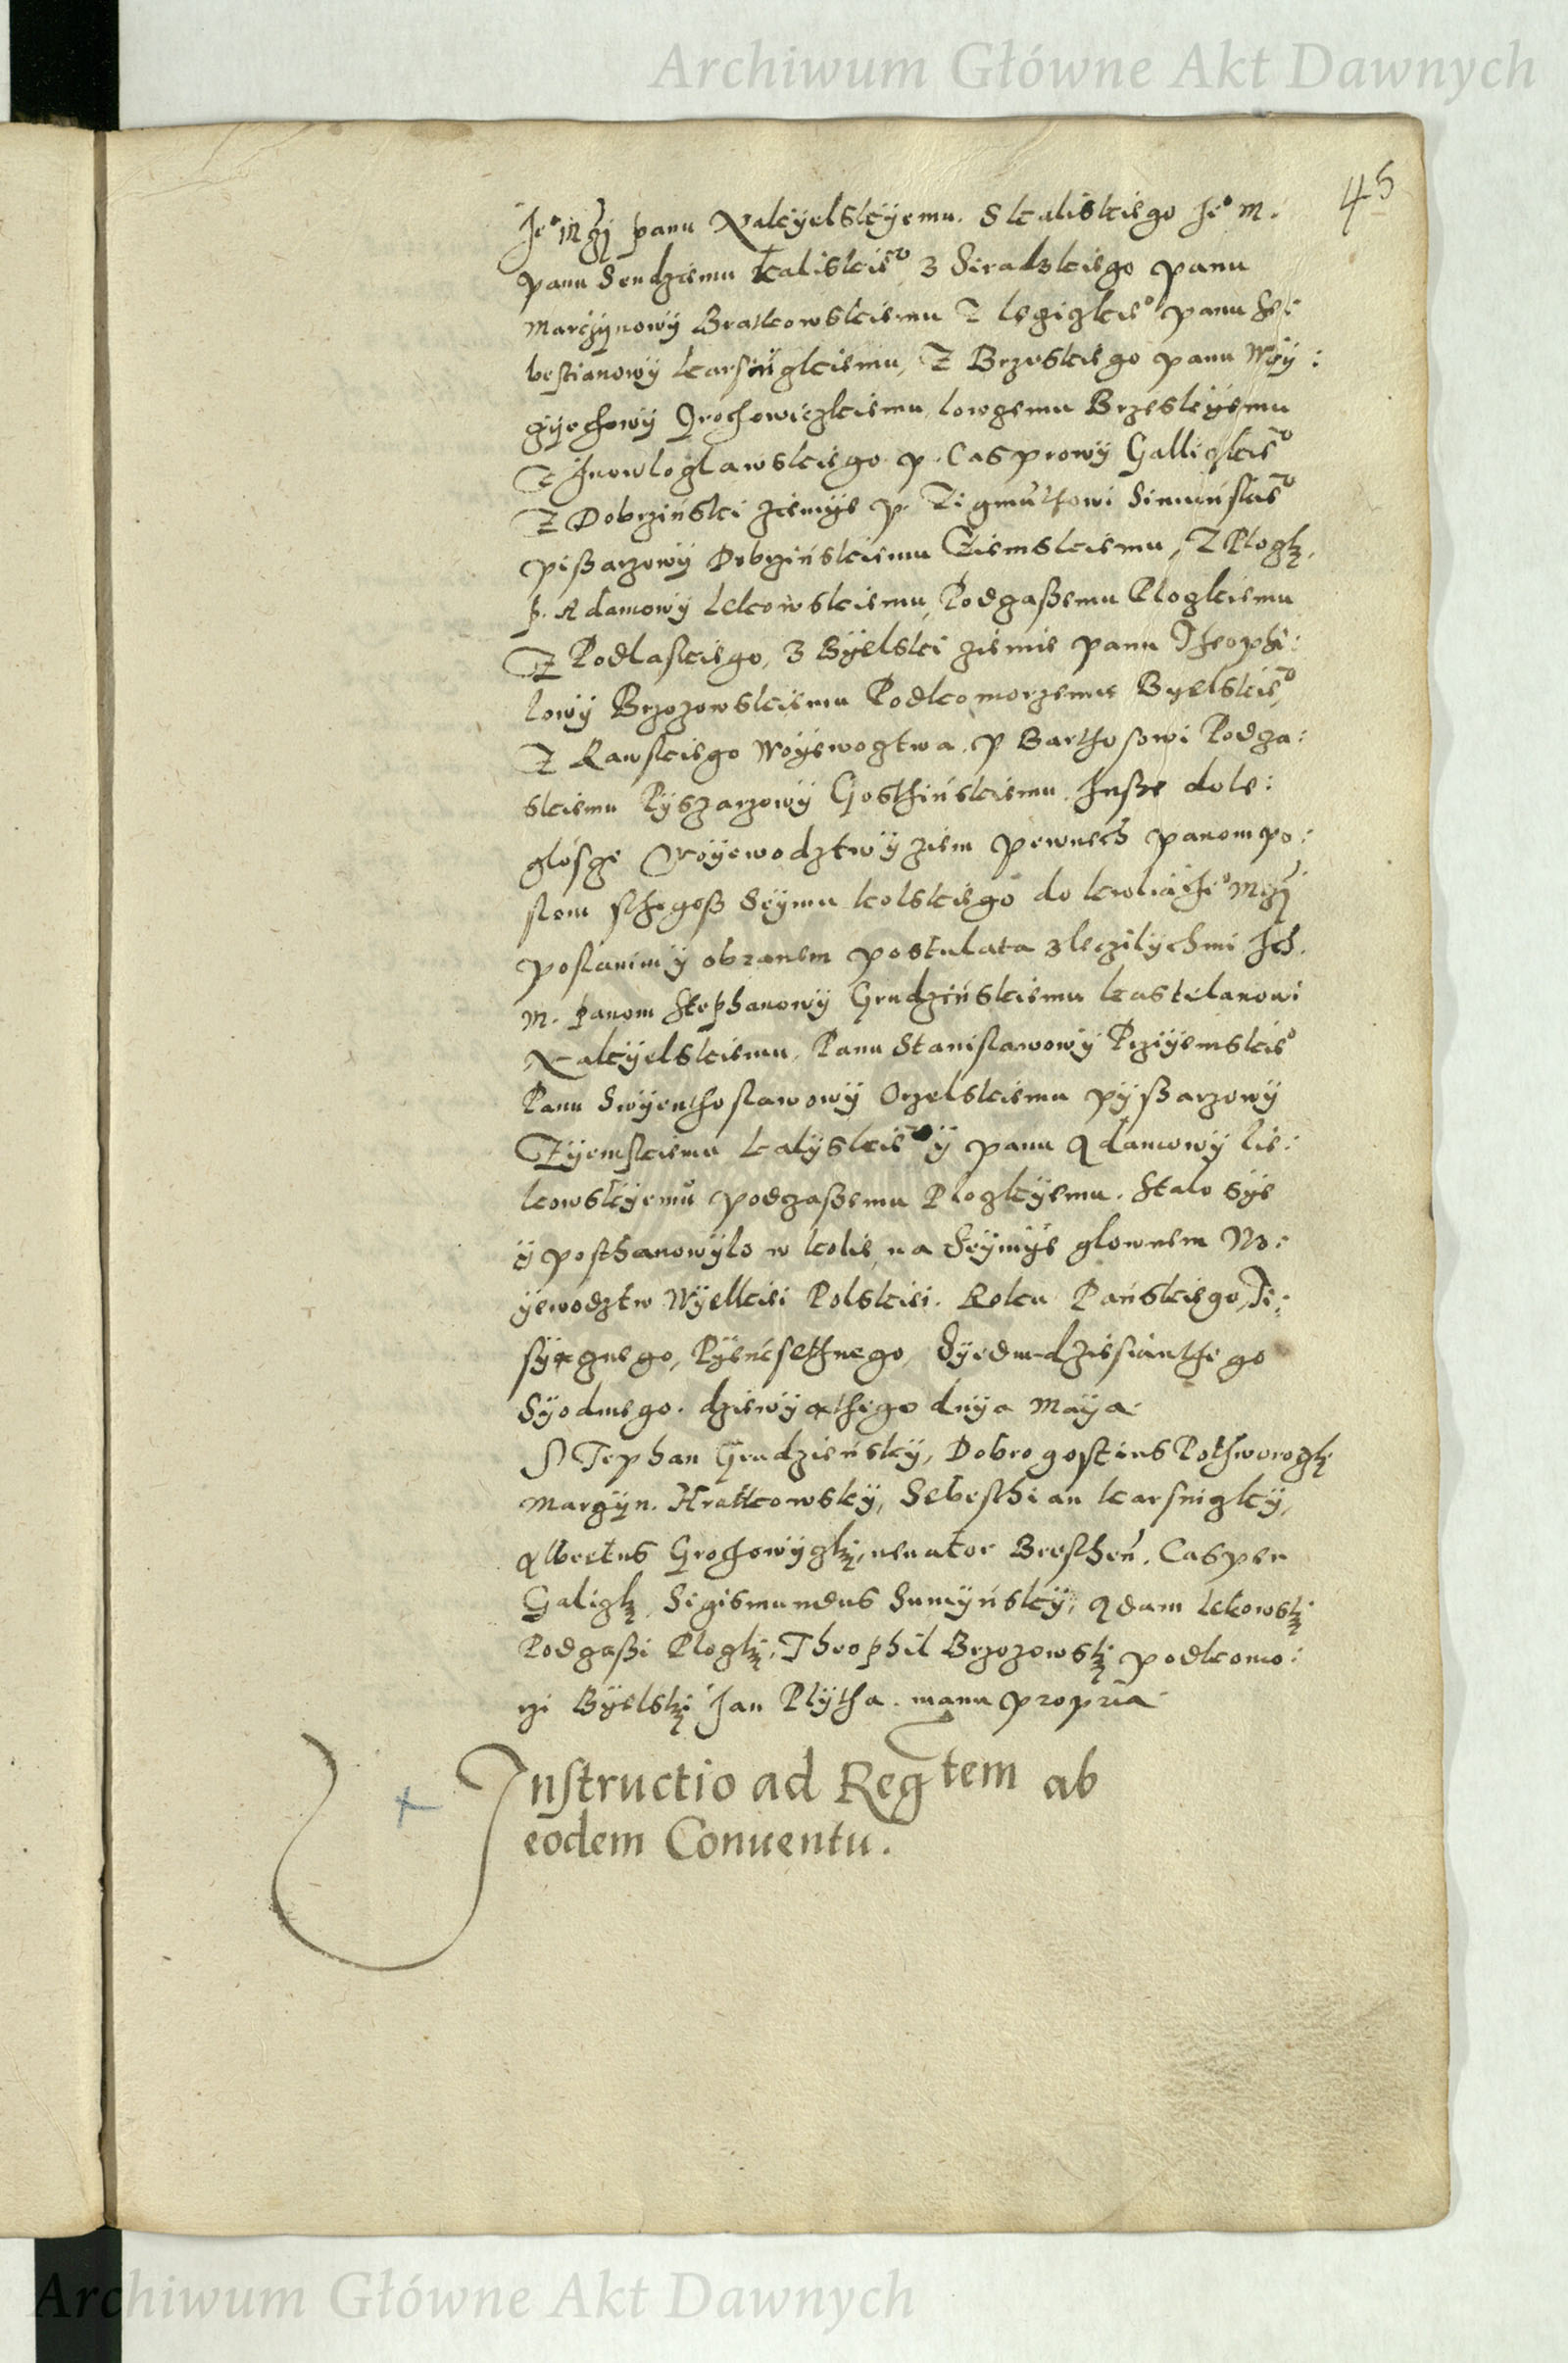 Archiwum Główne Akt Dawnych
45
Je° Mczi panu Nakÿelskÿemu. S kaliskiego Je° M.
panu Sendziemu kaliskie° z Siradzkiego panu
Marczÿnowÿ Bratkowskiemu Z legiczkie° panu Se:
bestianowÿ karsniczkiemu, Z Brzeskiego panu Woÿ:
cÿechowÿ Grochowiczkiemu lowczemu Brzeskÿemu
Z Inowloczlawskiego p. Casprowÿ Galliczkie°
Z Dobrzińskei ziemÿe p. Zigmūthowi Sumińskie°
pißarzowÿ Dobrzińskiemu Ziemskiemu, Z Ploczk.
p. Adamowÿ lekowskiemu, Podczaßemu Ploczkiemu
Z Podlaskiego, z Bÿelskei ziemie panu Theophi:
lowÿ Brzozowskiemu Podkomorzemu Byelskie°,
Z Rawskiego Woÿewoztwa. p Barthosowi Podcza:
skiemu Pÿszarzowÿ Gosthińskiemu. Insze dole:
glosze Woÿewodztwÿ ziem pewnech panom po:
slom sthegoß Seÿmu kolskiego do krolia Je° Mczi
poslanimÿ obranem postulata zleczilÿchmi Ich.
M. panom Stephanowÿ Grudzińskiemu kastelanowi
Nakÿelskiemu, Panu Stanislawowÿ Prziÿemskie°
Panu Swÿenthoslawowÿ Orzelskiemu pÿßarzowÿ
Zÿemskiemu kalÿskie° ÿ panu Adamowÿ lie:
kowskÿemu podczaßemu Ploczkÿemu. Stalo sÿe
ÿ posthanowÿlo w kolie, na Seÿmÿe glownem Wo:
ÿewodztw Wÿelkiei Polskiei. Roku Pańskiego, Ti:
sÿącznego, Pÿencsethnego, Sÿedmdziesiąnthego
Sÿodmego. dziewÿąthego dnÿa Maÿa.
STephan Grudzieńskÿ, Dobrogostius Pothworoczk
Marczÿn. Kratkowskÿ, Sebesthian karsniczkÿ,
Albertus Grochowÿczki, venator Bresthen. Casper
Galiczk, Sigismundus Sumÿńskÿ, Adam lekowski
Podczaßi Ploczki, Theophil Brzozowski podkomo:
rzi Bÿelski Jan Plÿtha. manu propria
Instructio ad Reg̃tem ab
eodem Conuentu.
Archiwum Główne Akt Dawnych